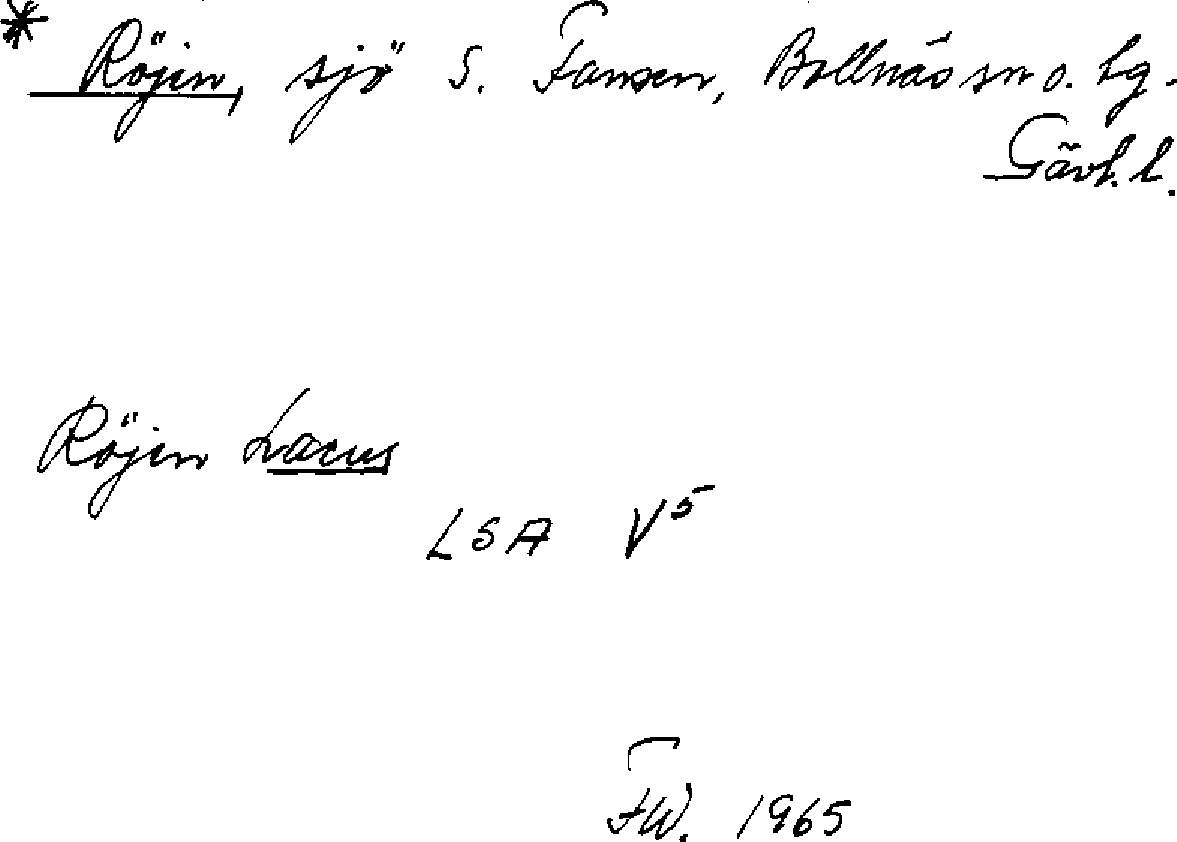 * Röjen, sjö S. Fansen, Bollnäs sn o. lg.
Gävl. l.
Röjen Lacus
LSA V⁵
FW. 1965